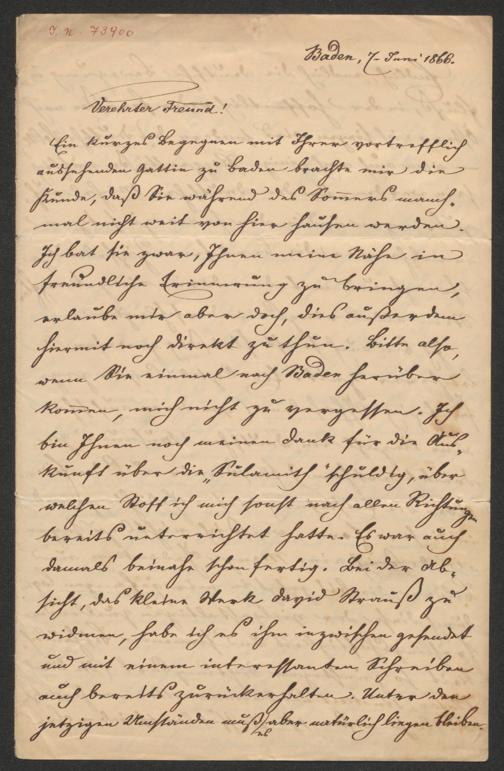 J. N. 73900
Baden, 7. Juni 1866.
Verehrter Freund!
Ein kurzes Begegnen mit Ihrer vortrefflich
aussehenden Gattin zu Baden brachte mir die
Kunde, daß Sie während des Sommers manch-
mal nicht weit von hier hausen werden.
Ich bat sie zwar, Ihnen meine Nähe in
freundliche Erinnerung zu bringen,
erlaube mir aber doch, dies außerdem
hiermit noch direkt zu thun. Bitte also,
wenn Sie einmal nach Baden herüber
kommen, mich nicht zu vergessen. Ich
bin Ihnen noch meinen Dank für die Aus-
kunft über die „Sulamith" schuldig, über
welchen Stoff ich mich sonst nach allen Richtungen
bereits unterrichtet hatte. Es war auch
damals beinahe schon fertig. Bei der Ab-
sicht, das kleine Werk David Strauß zu
widmen, habe ich es ihm inzwischen gesendet
und mit einem interessanten Schreiben
auch bereits zurückerhalten. Unter den
jetzigen Umständen muß es aber natürlich liegen bleiben.